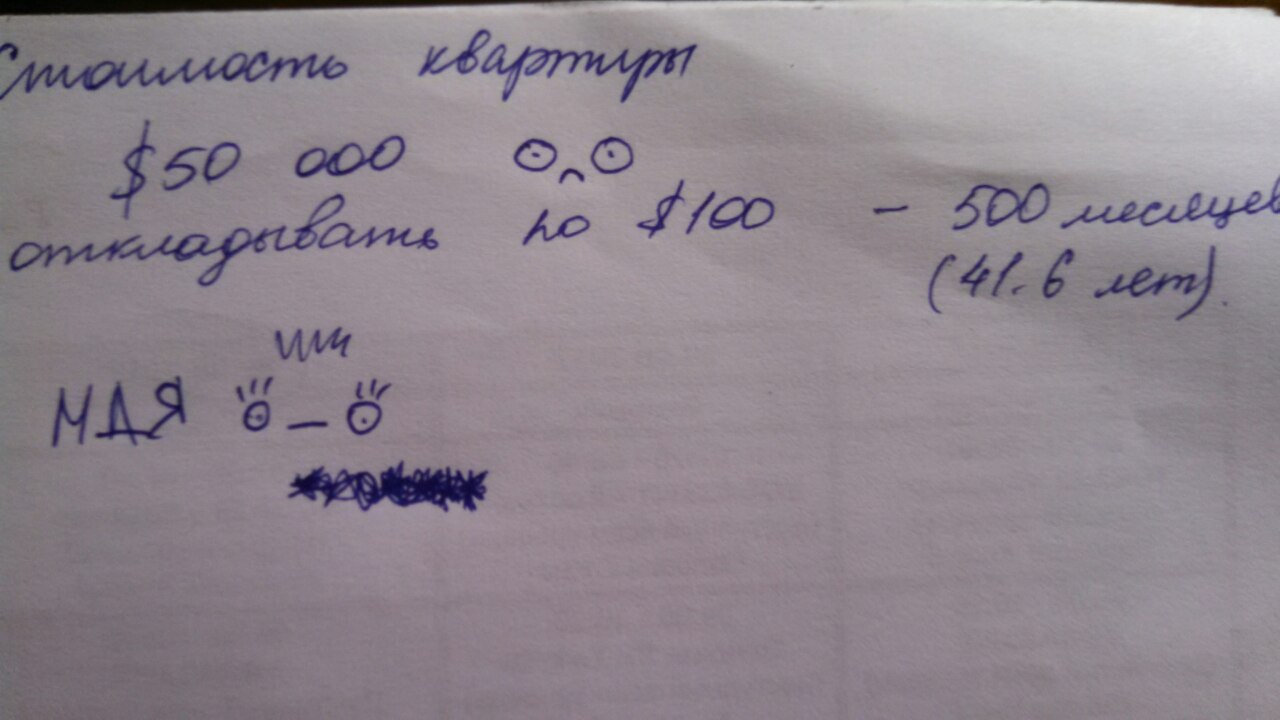 Стоимость квартиры
$50 000
откладывать по $100 – 500 месяцев
(41.6 лет).
МДЯ